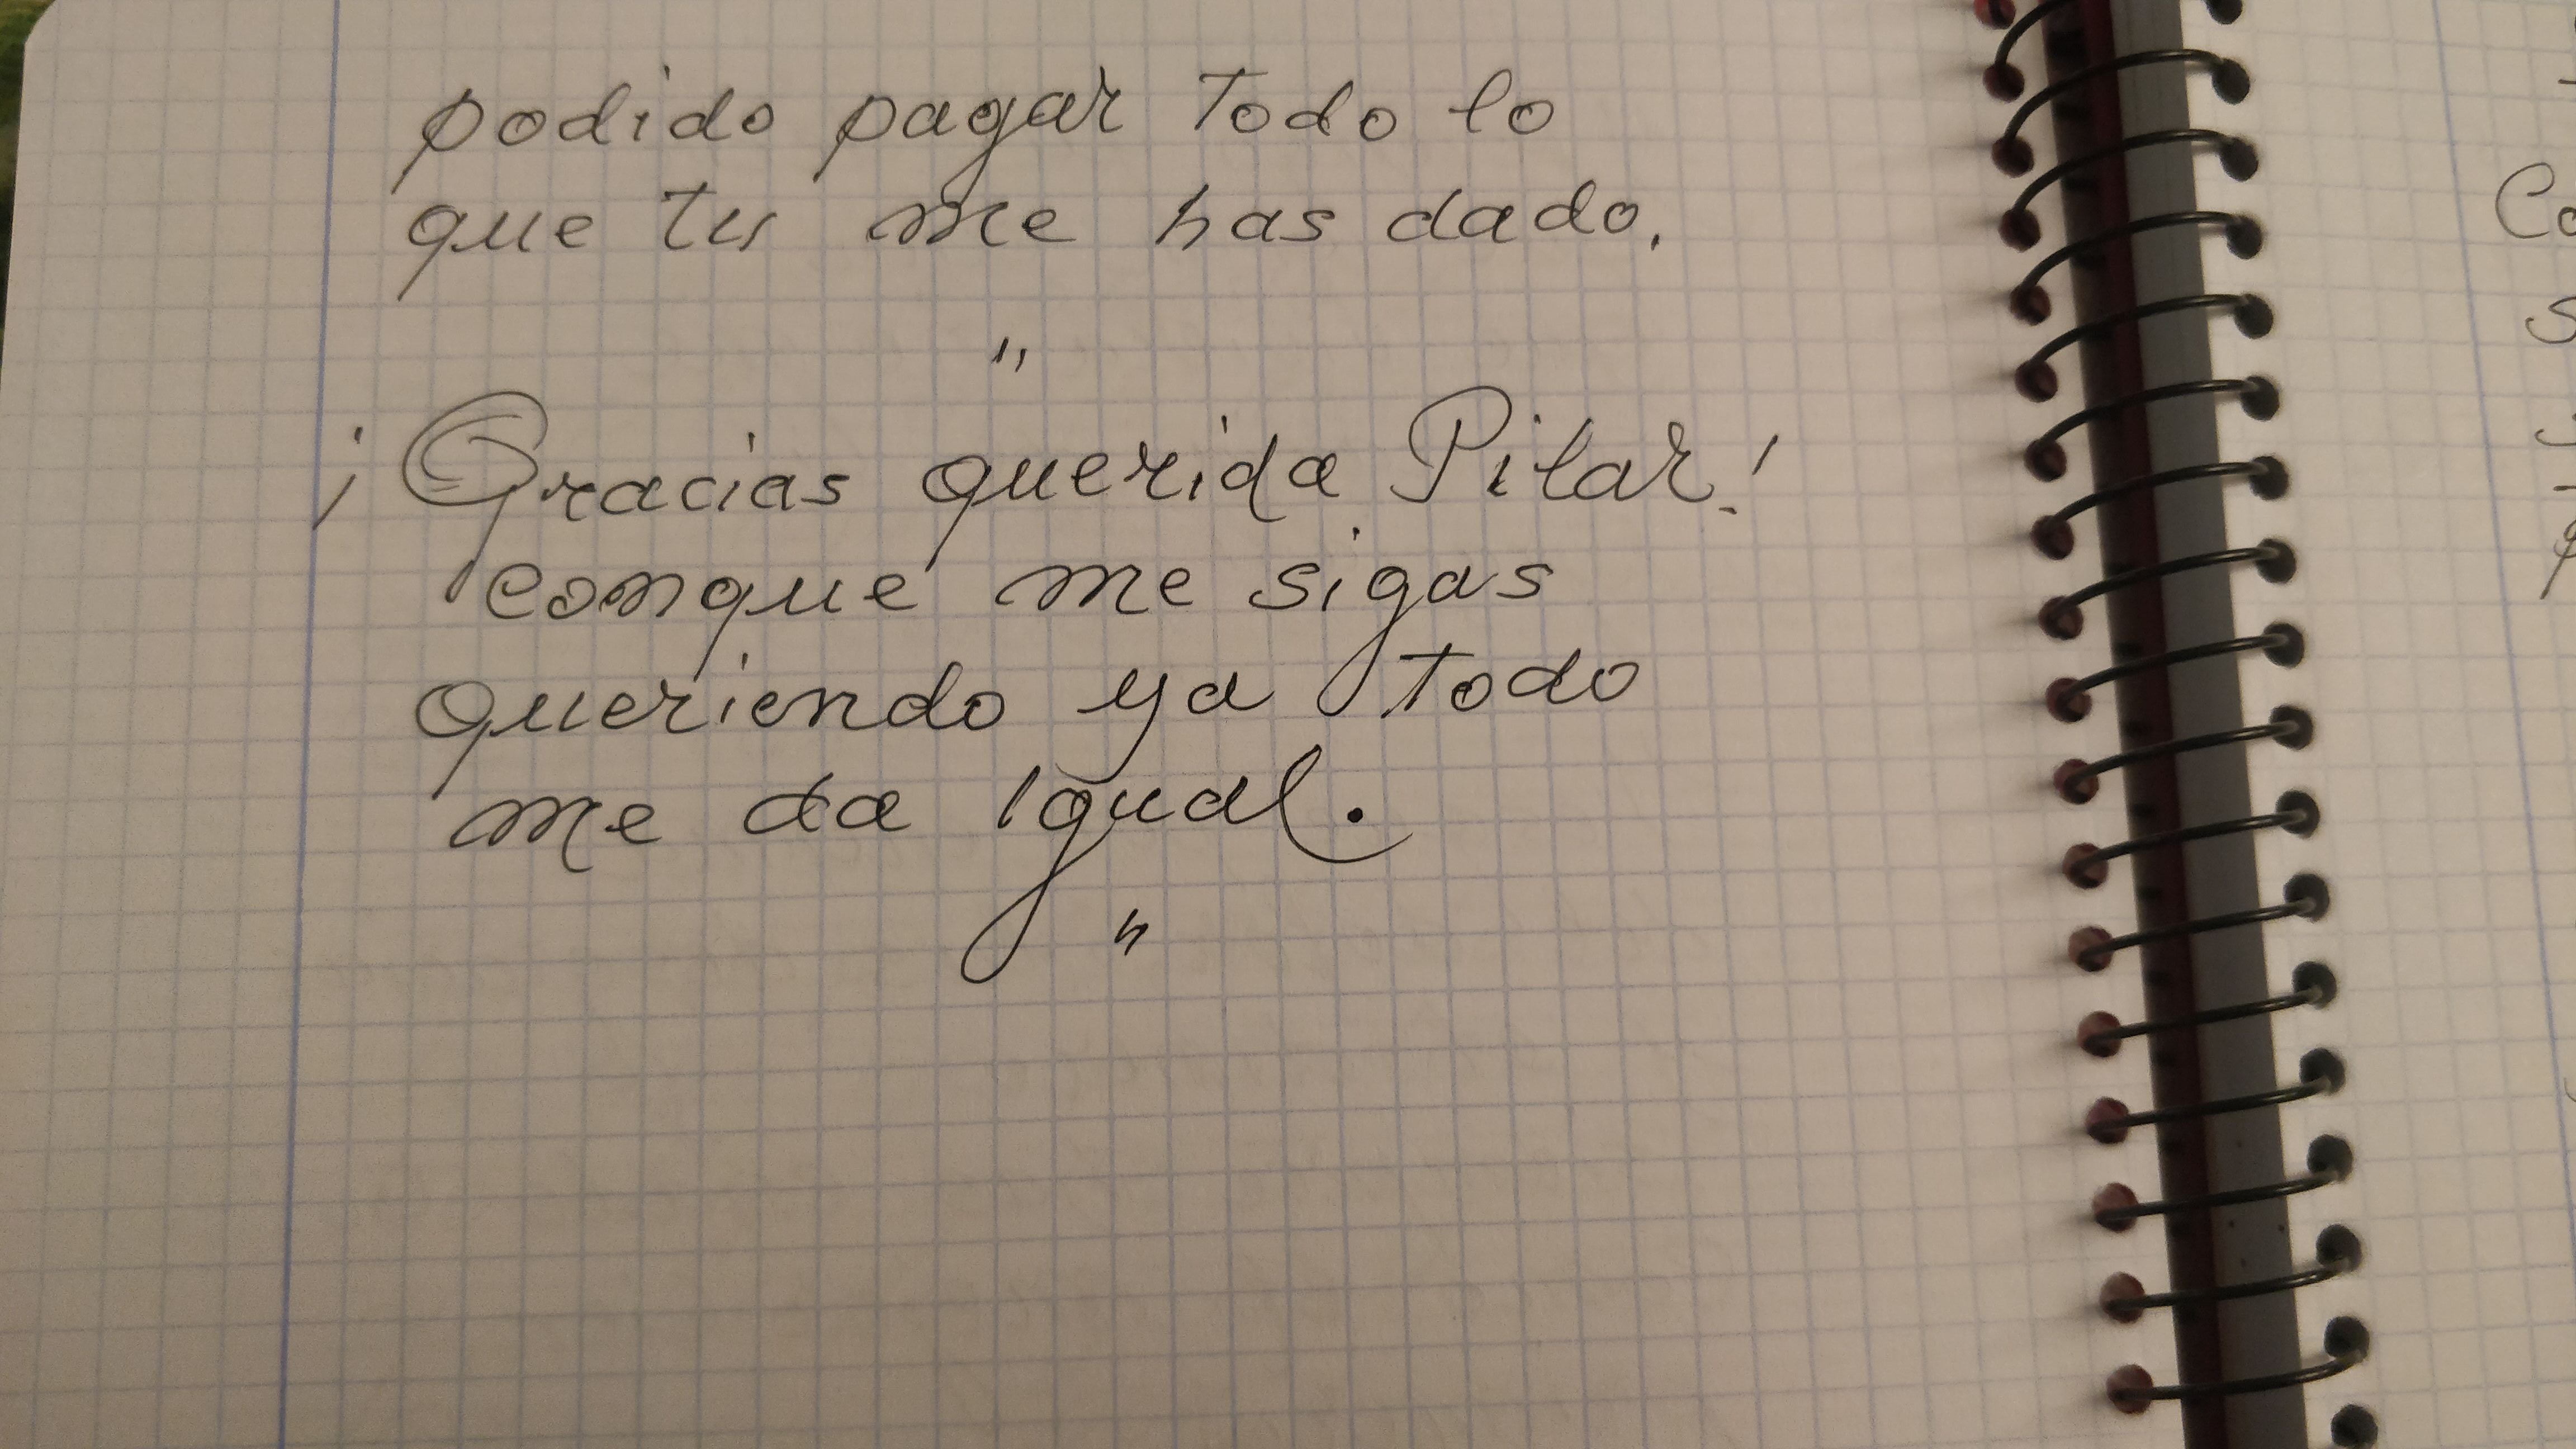 podido pagar todo lo
que tu me has dado.
"
¡Gracias querida Pilar!
conque me sigas
queriendo ya todo
me da igual.
"
Co